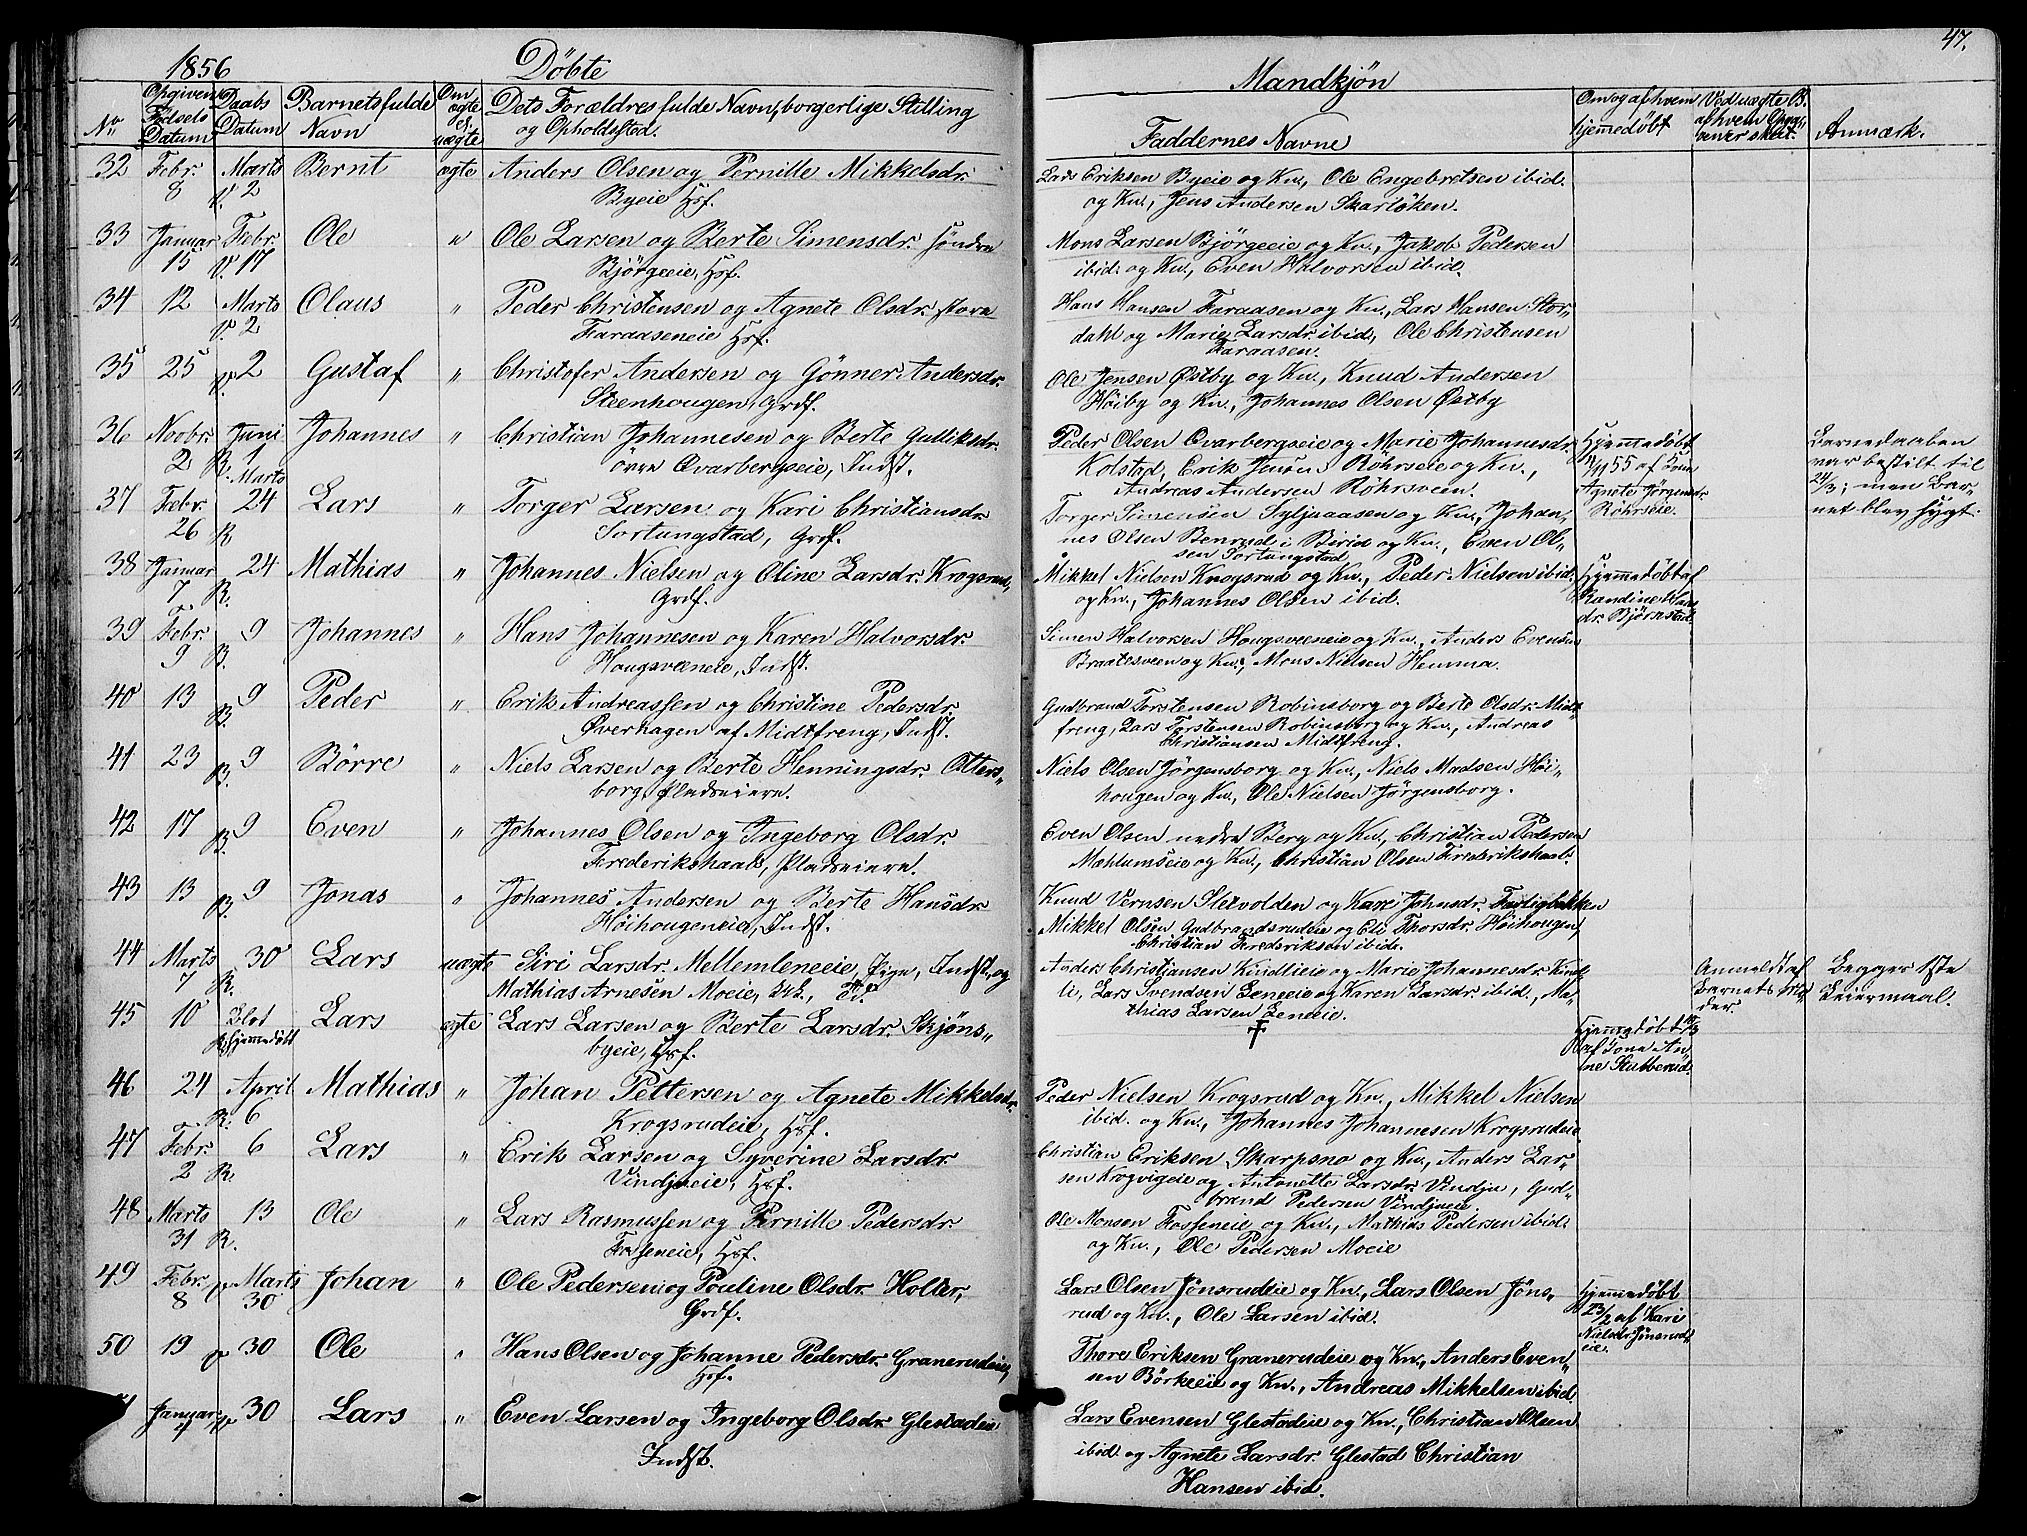 1856 Döbte
No Opgiven Födsels Datum Daabs Datum Barnets fulde Navn Om ægte el. uægte Dets Forældres fulde Navn, borgerlige Stilling
og Opholdssted.
32 Febr. 8 Marts V. 2 Bernt ægte Anders Olsen og Pernille Mikkelsdr.
Byeie Hsf.
33 Januar 15 Febr. V. 17 Ole " Ole Larsen og Berte Simensdr. söndre
Björgeeie, Hsf.
34 12 Marts V. 2 Olaus " Peder Christensen og Agnete Olsdr. store
Faraaseneie Hsf.
35 25 V. 2 Gustaf " Christofer Andersen og Gönner Andersdr.
Steenhougen, Grdf.
36 Novbr. 2 Juni R. 1 Johannes " Christian Johannesen og Berte Gulliksdr.
övre Qvarbergseie, Indst.
37 Febr. 26 Marts 24 R Lars " Torger Larsen og Kari Christiansdr.
Sortungstad, Grdf.
38 Januar 7 24 R. Mathias " Johannes Nielsen og Oline Larsdr. Krogsrud,
Grdf.
39 Febr 9 9 B. Johannes " Hans Johannesen og Karen Halvorsdr.
Hougsveeneie, Indst.
40 13 B. 9 Peder " Erik Andreassen og Christine Pedersdr.
Øverhagen af Midtfreng, Indst.
41 23 B. 9 Börre " Niels Larsen og Berte Henningsdr. Otters-
borg, Pladseiere.
42 17 B. 9 Even " Johannes Olsen og Ingeborg Olsdr.
Frederikshaab, Pladseiere.
43 13 B. 9 Jonas " Johannes Andersen og Berte Hansdr.
Höihougeneie, Indst.
44 Marts 7 30 R. Lars uægte Siri Larsdr. Mellemleneeie, Pige, Indst. og
Mathias Arnesen Moeie,
45 10 Blot hjemmedöbt Lars ægte Lars Larsen og Berte Larsdr. Skjöns-
byeie, Hsf.
46 24 April R. 6 Mathias " Johan Pettersen og Agnete Mikkelsdr.
Krogsrudeie, Hsf.
47 Febr. 2 6 R. Lars " Erik Larsen og Syverine Larsdr.
Vindjueie, Hsf.
48 Marts 31 13 R. Ole " Lars Rasmussen og Pernille Pedersdr.
Fosseneie, Hsf.
49 Febr. 8 V Marts 30 Johan " Ole Pedersen og Pouline Olsdr. Holter,
Grdf.
50 19 V 30 Ole " Hans Olsen og Johanne Pedersdr. Granerudeie,
Hsf.
Januar 30 Lars " Even Larsen og Ingeborg Olsdr. Glestadeie
Indst.
47.
Mandkjön
Faddernes Navne Om og af hvem hjemmedöbt Ved uægte B. af hvem Opgivener skeet. Anmærk.
Lars Eriksen Byeie og Kn., Ole Engebretsen ibid.
og Kn., Jens Andersen Skarlöken.
Mons Larsen Björgeeie og Kn., Jakob Pedersen
ibid. og Kn., Even Halvorsen ibid.
Hans Hansen Faraasen og Kn., Lars Hansen Stor-
dahl og Marie Larsdr. ibid, Ole Christensen
Faraasen.
Ole Jensen Østby og Kn., Knud Andersen
Höiby og Kn., Johannes Olsen Østby
Peder Olsen Qvarbergseie og Marie Johannesdr.
Kolstad, Erik Jensen Röhrseie og Kn.,
Andreas Andersen Röhrsveen.
Hjemmedöbt 11/11 55 af Kone Agnete Jörgensdr. Röhrseie.
Barnedaaben
var bestilt til
24/3; men Bar-
net blev sygt.
Torger Simensen Syljuaasen og Kn., Johan-
nes Olsen Benrud i Berid og Kn., Even Ol-
sen Sortungstad
Mikkel Nielsen Krogsrud og Kn., Peder Nielsen ibid.
og Kn., Johannes Olsen ibid.
Hjemmedöbt af
Randine Hans
dr. Björnstad.
Simen Halvorsen Hougsveeneie og Kn., Anders Evensen
Braatesveen og Kn., Mons Nielsen Hemma.
Gudbrand Torstensen Robinsborg og Berte Olsdr. Midt-
freng, Lars Torstensen Robinsborg og Kn., Andreas
Christiansen Midtfreng.
Niels Olsen Jörgensborg og Kn., Niels Madsen Höi-
hougen og Kn., Ole Nielsen Jörgensborg.
Even Olsen nedre Berg og Kn., Christian Pedersen
Mæhlumseie og Kn., Christian Olsen Frederikshaab.
Knud Vernsen Sletvolden og Kari Johnsdr. Fastigbakken
Mikkel Olsen Gudbrandsrudeie og Eli Thorsdr. Höihougen,
Christian Frederiksen ibid.
Anders Christiansen Kindlieie og Marie Johannesdr. Kind-
li, Lars Svendsen Leneeie og Karen Larsdr. ibid., Ma-
thias Larsen Leneeie.
Anmeldt af
Barnets Mo-
der.
Begges 1ste
Leiermaal.
†
Hjemmedöbt
af Jone An-
ne Stubberud.
Peder Nielsen Krogsrud og Kn., Mikkel Nielsen
ibid. og Kn., Johannes Johannesen Krogsrudeie.
Christian Eriksen Skarpsno og Kn., Anders Lar-
sen Krogvigeie og Antonette Larsdr. Vindju, Gud-
brand Pedersen Vindjueie
Ole Monsen Fosseneie og Kn., Mathias Pedersen ibid.
og Kn., Ole Pedersen Moeie
Lars Olsen Jönsrudeie og Kn., Lars Olsen Jöns-
rud og Kn., Ole Larsen ibid.
Hjemmedöbt
23/2 af Kari
Nielsdr. Jönsrud-
eie.
Thore Eriksen Granerudeie og Kn., Anders Even-
sen Börkeeie og Kn., Andreas Mikkelsen ibid.
Lars Evensen Glestadeie og Kn., Christian Olsen
ibid. og Agnete Larsdr. Glestad Christian
Hansen ibid.